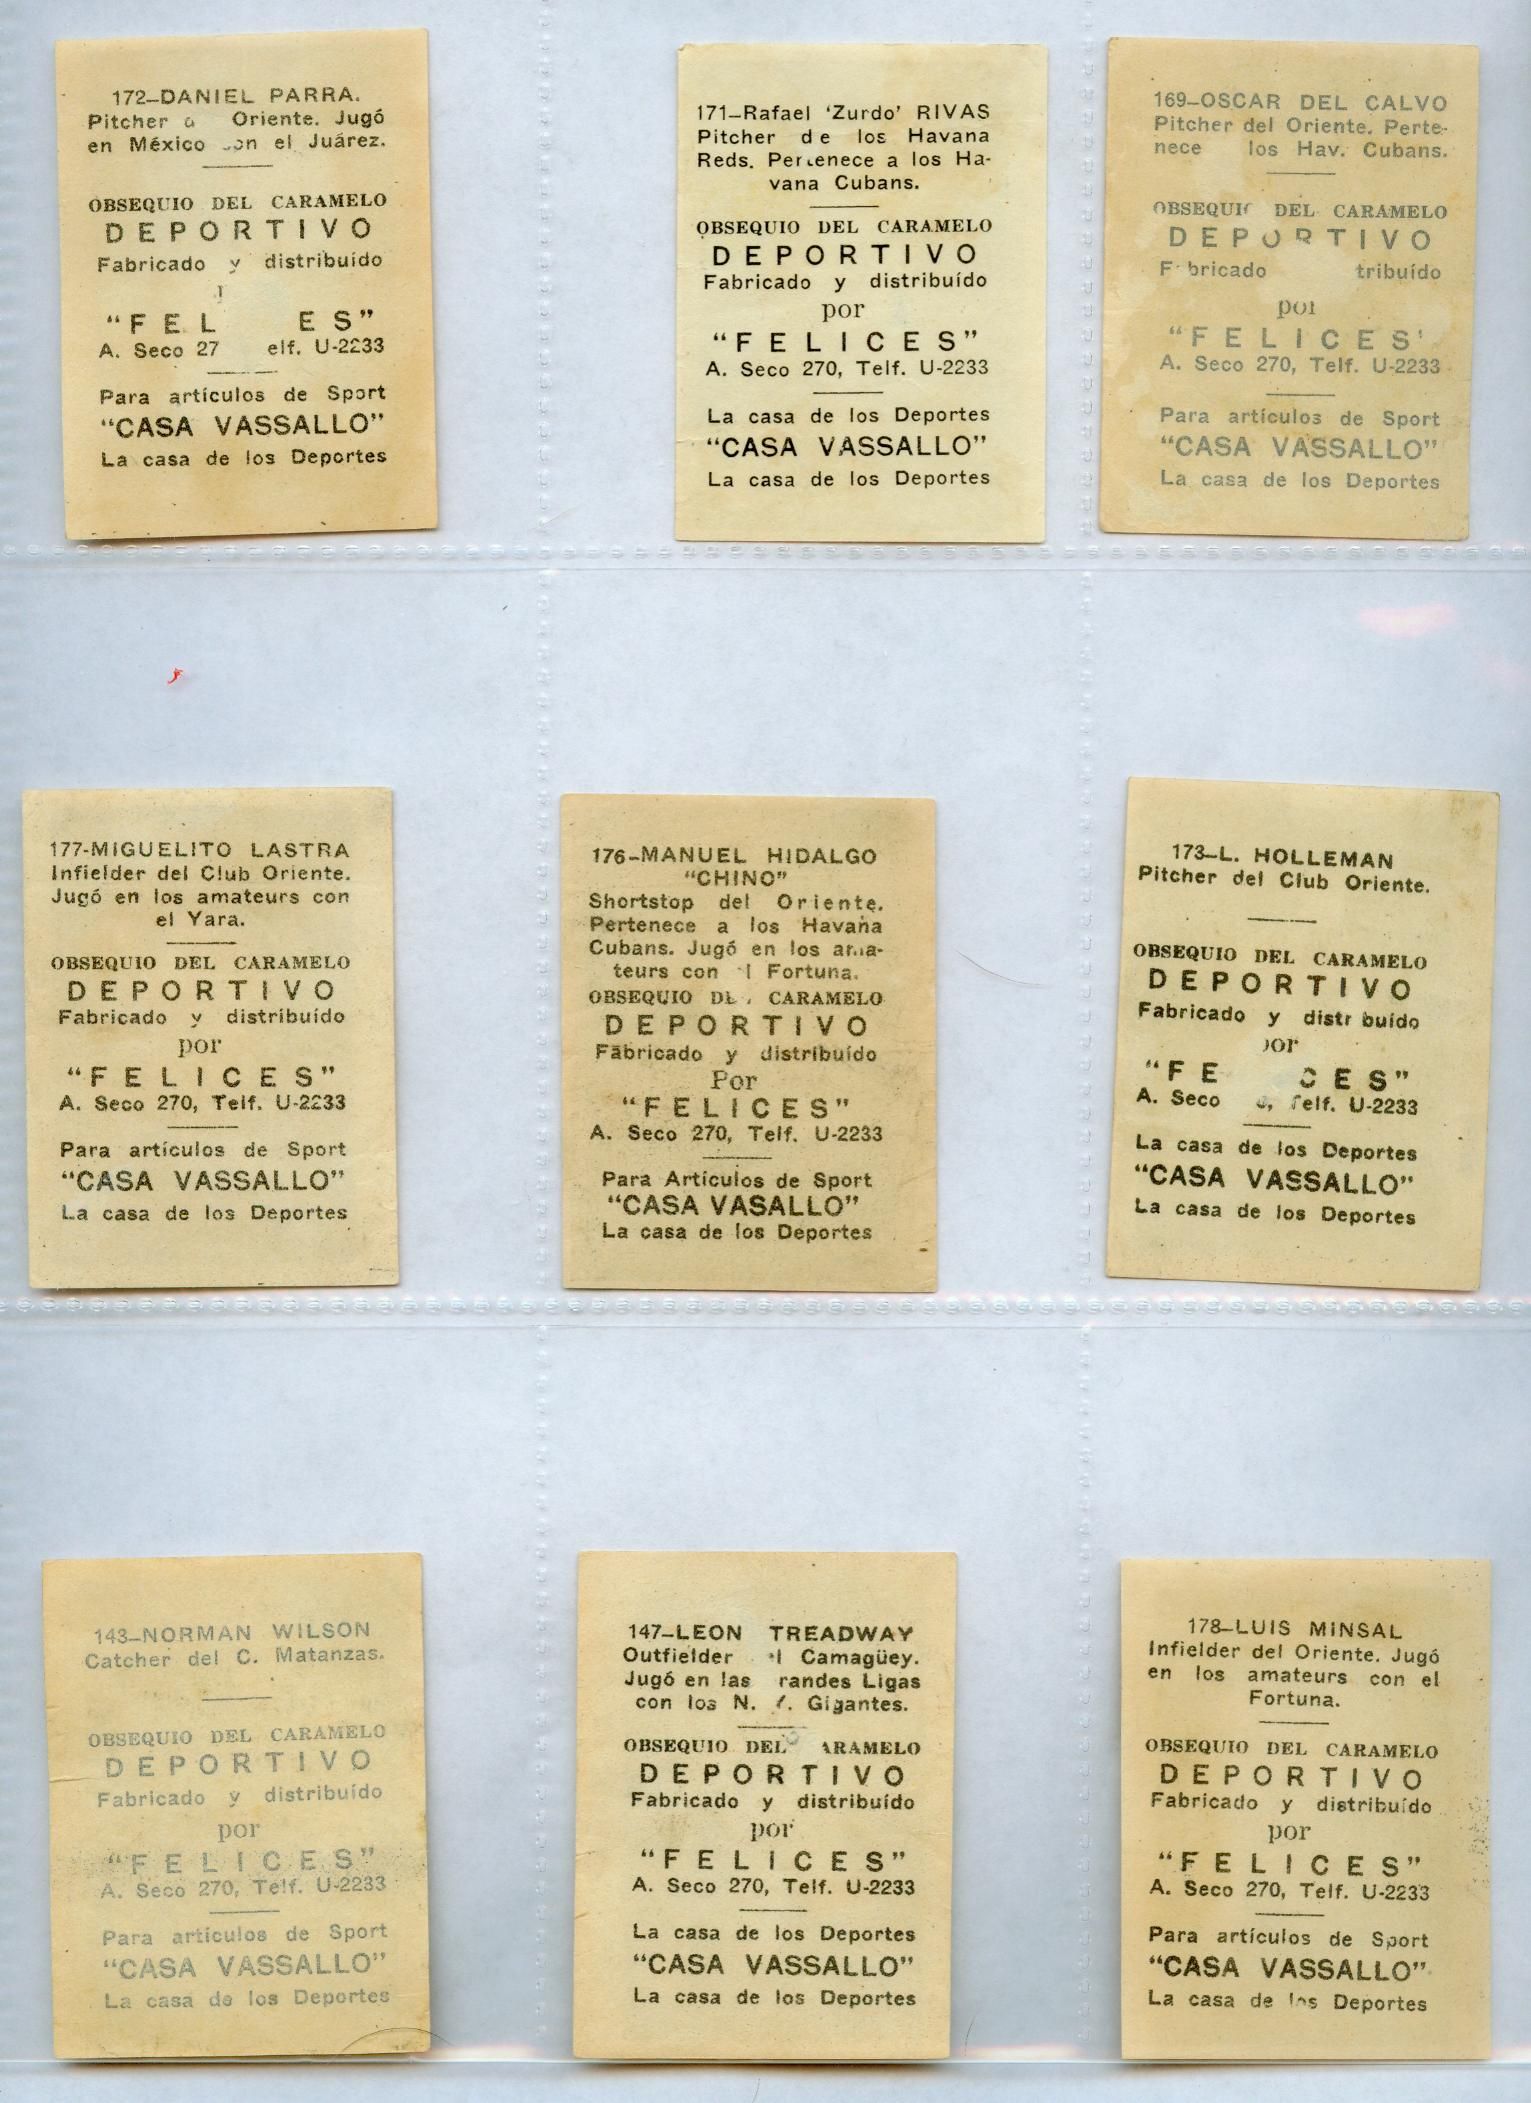 172-DANIEL PARRA.
Pitcher Oriente. Jugó
en México el Juárez.
OBSEQUIO DEL CARAMELO
DEPORTIVO
Fabricado y distribuído
"FEL ES"
A. Seco 27 elf. U-2233
Para artículos de Sport
"CASA VASSALLO"
La casa de los Deportes
171-Rafael 'Zurdo' RIVAS
Pitcher de los Havana
Reds. Pertenece a los Ha-
vana Cubans.
OBSEQUIO DEL CARAMELO
DEPORTIVO
Fabricado y distribuído
por
"FELICES"
A. Seco 270, Telf. U-2233
La casa de los Deportes
"CASA VASSALLO"
La casa de los Deportes
169-OSCAR DEL CALVO
Pitcher del Oriente. Perte-
nece los Hav. Cubans.
OBSEQUI DEL CARAMELO
DEPORTIVO
F bricado tribuído
por
"FELICES'
A. Seco 270, Telf. U-2233
Para artículos de Sport
"CASA VASSALLO"
La casa de los Deportes
177-MIGUELITO LASTRA
Infielder del Club Oriente.
Jugó en los amateurs con
el Yara.
OBSEQUIO DEL CARAMELO
DEPORTIVO
Fabricado y distribuído
por
"FELICES"
A. Seco 270, Telf. U-2233
Para artículos de Sport
"CASA VASSALLO"
La casa de los Deportes
176-MANUEL HIDALGO
"CHINO"
Shortstop del Oriente.
Pertenece a los Havana
Cubans. Jugó en los ama-
teurs con l Fortuna.
OBSEQUIO DE CARAMELO
DEPORTIVO
Fabricado y distribuído
Por
"FELICES"
A. Seco 270, Telf. U-2233
Para Artículos de Sport
"CASA VASALLO"
La casa de los Deportes
173-L. HOLLEMAN
Pitcher del Club Oriente.
OBSEQUIO DEL CARAMELO
DEPORTIVO
Fabricado y distr buído
por
"FE CES"
A. Seco Telf. U-2233
La casa de los Deportes
"CASA VASSALLO"
La casa de los Deportes
143-NORMAN WILSON
Catcher del C. Matanzas.
OBSEQUIO DEL CARAMELO
DEPORTIVO
Fabricado y distribuído
por
"FELICES"
A. Seco 270, Telf. U-2233
Para artículos de Sport
"CASA VASSALLO"
La casa de los Deportes
147-LEON TREADWAY
Outfielder l Camagüey.
Jugó en las randes Ligas
con los N. Y. Gigantes.
OBSEQUIO DEL ARAMELO
DEPORTIVO
Fabricado y distribuído
por
"FELICES"
A. Seco 270, Telf. U-2233
La casa de los Deportes
"CASA VASSALLO"
La casa de los Deportes
178-LUIS MINSAL
Infielder del Oriente. Jugó
en los amateurs con el
Fortuna.
OBSEQUIO DEL CARAMELO
DEPORTIVO
Fabricado y distribuído
por
"FELICES"
A. Seco 270, Telf. U-2233
Para artículos de Sport
"CASA VASSALLO"
La casa de los Deportes